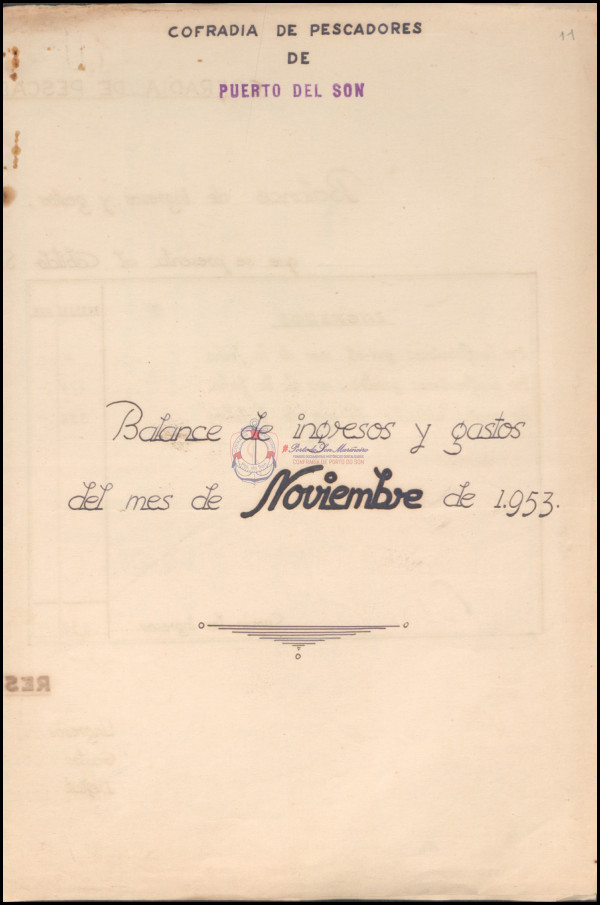 COFRADIA DE PESCADORES
11
DE
PUERTO DEL SON
Balance de ingresos y gastos
Porto do Son Mariñeiro
CONFRARÍA DE PORTO DO SON
del mes de Noviembre de 1.953.